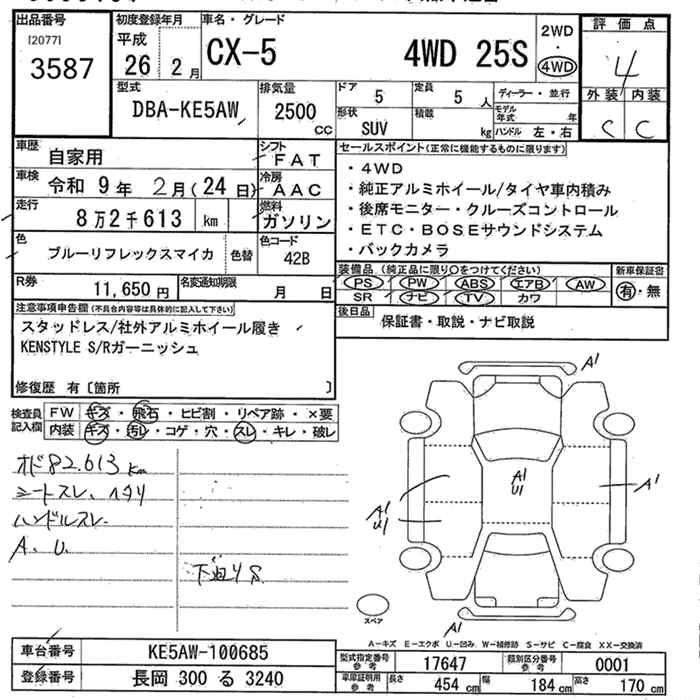 出品番号
[2077]
3587
初度登録年月
平成
26 2月
車名・グレード
CX-5 4WD 25S
2WD
・
4WD
評価点
4
外装 内装
C C
型式
DBA-KE5AW
排気量
2500
CC
ドア
5
定員
5 人
ディーラー・並行
形状
SUV
積載
kg
モデル年式 年
ハンドル 左・右
車歴
自家用
シフト
FAT
車検
令和 9年 2月(24日)
冷房
AAC
走行
8万2千613 km
燃料
ガソリン
色
ブルーリフレックスマイカ
色替
色コード
42B
R券
11,650 円
名変通知期限
月 日
セールスポイント(正常に機能するものに限ります)
・4WD
・純正アルミホイール/タイヤ車内積み
・後席モニター・クルーズコントロール
・ETC・BOSEサウンドシステム
・バックカメラ
装備品 (純正品に限り○をつけてください)
PS PW ABS エアB AW
SR ナビ TV カワ
新車保証書
有・無
後日品
保証書・取説・ナビ取説
注意事項申告欄(不具合内容等は具体的に記入して下さい)
スタッドレス/社外アルミホイール履き
KENSTYLE S/Rガーニッシュ
修復歴 有〔箇所 〕
検査員記入欄
FW キズ・飛石・ヒビ割・リペア跡・×要
内装 キズ・汚レ・コゲ・穴・スレ・キレ・破レ
オド82.613km
シートスレ、ヘタリ
ハンドルスレ
A. U.
下廻りS
A1
A1
U1
A1
U1
A1
A1
スペア
A-キズ E-エクボ U-凹み W-補修跡 S-サビ C-腐食 XX-交換済
車台番号
KE5AW-100685
登録番号
長岡 300 る 3240
型式指定番号
参考
17647
類別区分番号
参考
0001
車庫証明用
参考
長さ
454 cm
幅
184 cm
高さ
170 cm